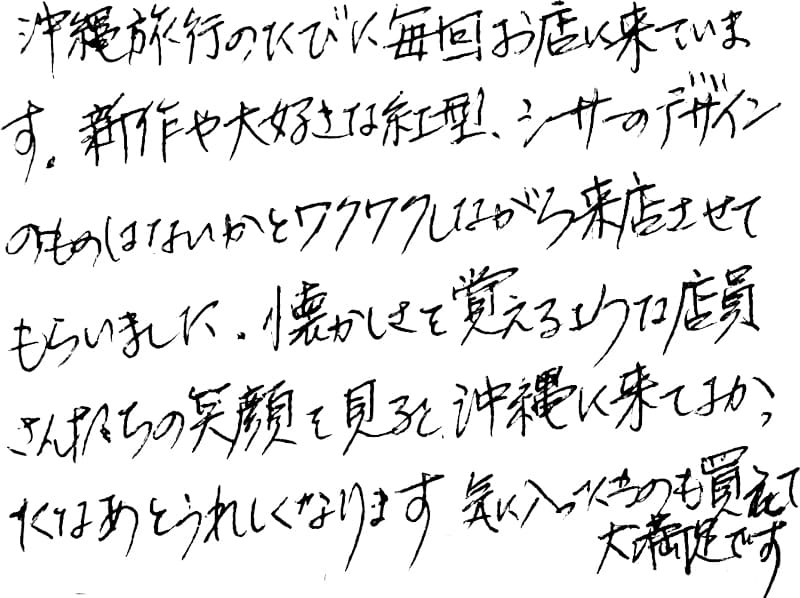 沖縄旅行のたびに毎回お店に来ていま
す。新作や大好きな紅型、シーサーのデザイン
のものはないかとワクワクしながら来店させて
もらいました。懐かしさを覚えるような店員
さんたちの笑顔を見ると沖縄に来てよかっ
たなあとうれしくなります 気に入ったものも買えて
大満足です